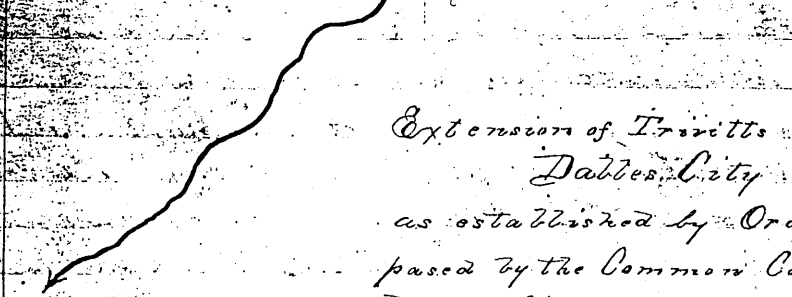 Extension of Trivitts
Dalles City
as established by Ord
pased by the Common Co